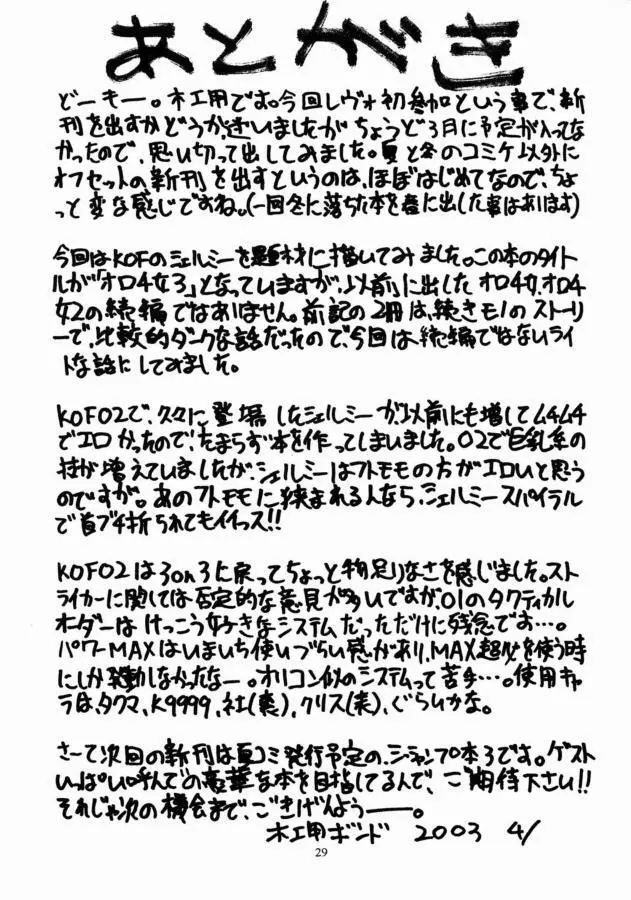 あとがき
どーもー。木工用です。今回レヴォ初参加という事で、新
刊を出すかどうか迷いましたがちょうど3月に予定が入ってな
かったので、思い切って出してみました。夏と冬のコミケ以外に
オフセットの新刊を出すというのは、ほぼはじめてなので、ちょ
っと変な感じですね。(一回冬に落ちた本を春に出した事はあります)
今回はKOFのシェルミーを題材に描いてみました。この本のタイト
ルが「オロ4女3」となっていますが、以前に出したオロ4女、オロ4
女2の続編ではありません。前記の2冊は、続きモノのストーリ
ーで、比較的ダークな話だったので、今回は続編ではないライ
トな話にしてみました。
KOF02で、久々に登場したシェルミーが、以前にも増してムチムチ
でエロかったので、たまらず本を作ってしまいました。02で巨乳系の
技が増えていましたが、シェルミーはフトモモの方がエロいと思う
のですが。あのフトモモに挟まれる人なら、シェルミースパイラル
で首ブチ折られてもイイっス!!
KOF02は3on3に戻ってちょっと物足りなさを感じました。スト
ライカーに関しては否定的な意見が多いですが、01のタクティカル
オーダーはけっこう好きなシステムだっただけに残念です…。
パワーMAXはいまいち使いづらい感があり、MAX超必を使う時
にしか発動しなかったなー。オリコン似のシステムって苦手…。使用キャ
ラは、タクマ、K9999、社(裏)、クリス(表)、ぐらいかな。
さーて次回の新刊は夏コミ発行予定の、ジャンプ本3です。ゲスト
いっぱい呼んでの豪華な本を目指してるんで、ご期待下さい!!
それじゃ次の機会まで、ごきげんよう――。
木工用ボンド 2003 4/
29